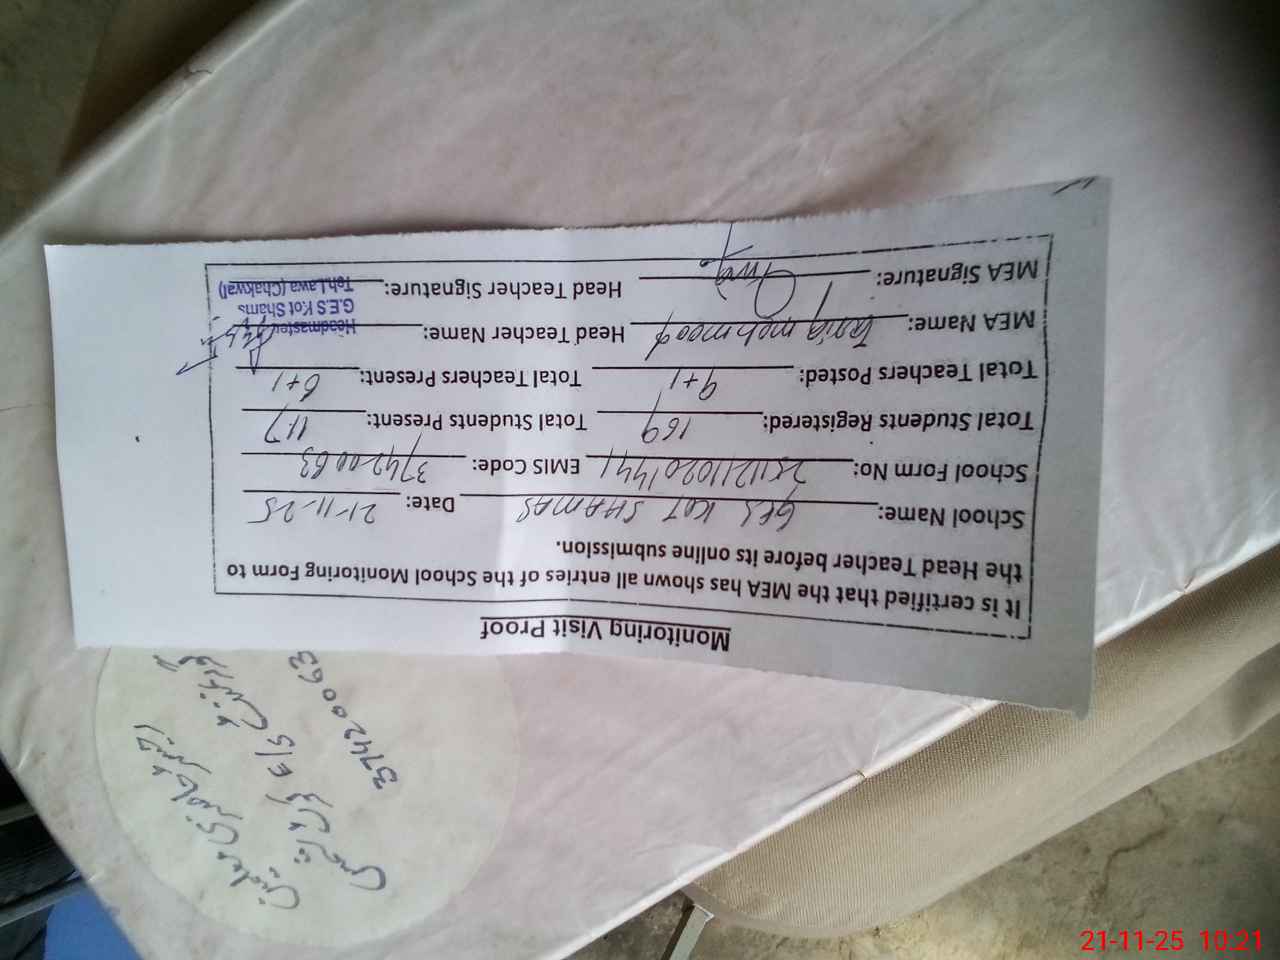 Monitoring Visit Proof
It is certified that the MEA has shown all entries of the School Monitoring Form to
the Head Teacher before its online submission.
School Name: GES KOT SHAMAS Date: 21-11-25
School Form No: EMIS Code: 37420063
Total Students Registered: 169 Total Students Present: 117
Total Teachers Posted: 9+1 Total Teachers Present: 6+1
MEA Name: Tariq mehmood Head Teacher Name:
MEA Signature: Head Teacher Signature:
Headmaster
G.E.S Kot Shams
Teh.Lawa (Chakwal)
رجسٹر حاضری معلمین
گورنمنٹ E/S کوٹ شمس
37420063
21-11-25 10:21